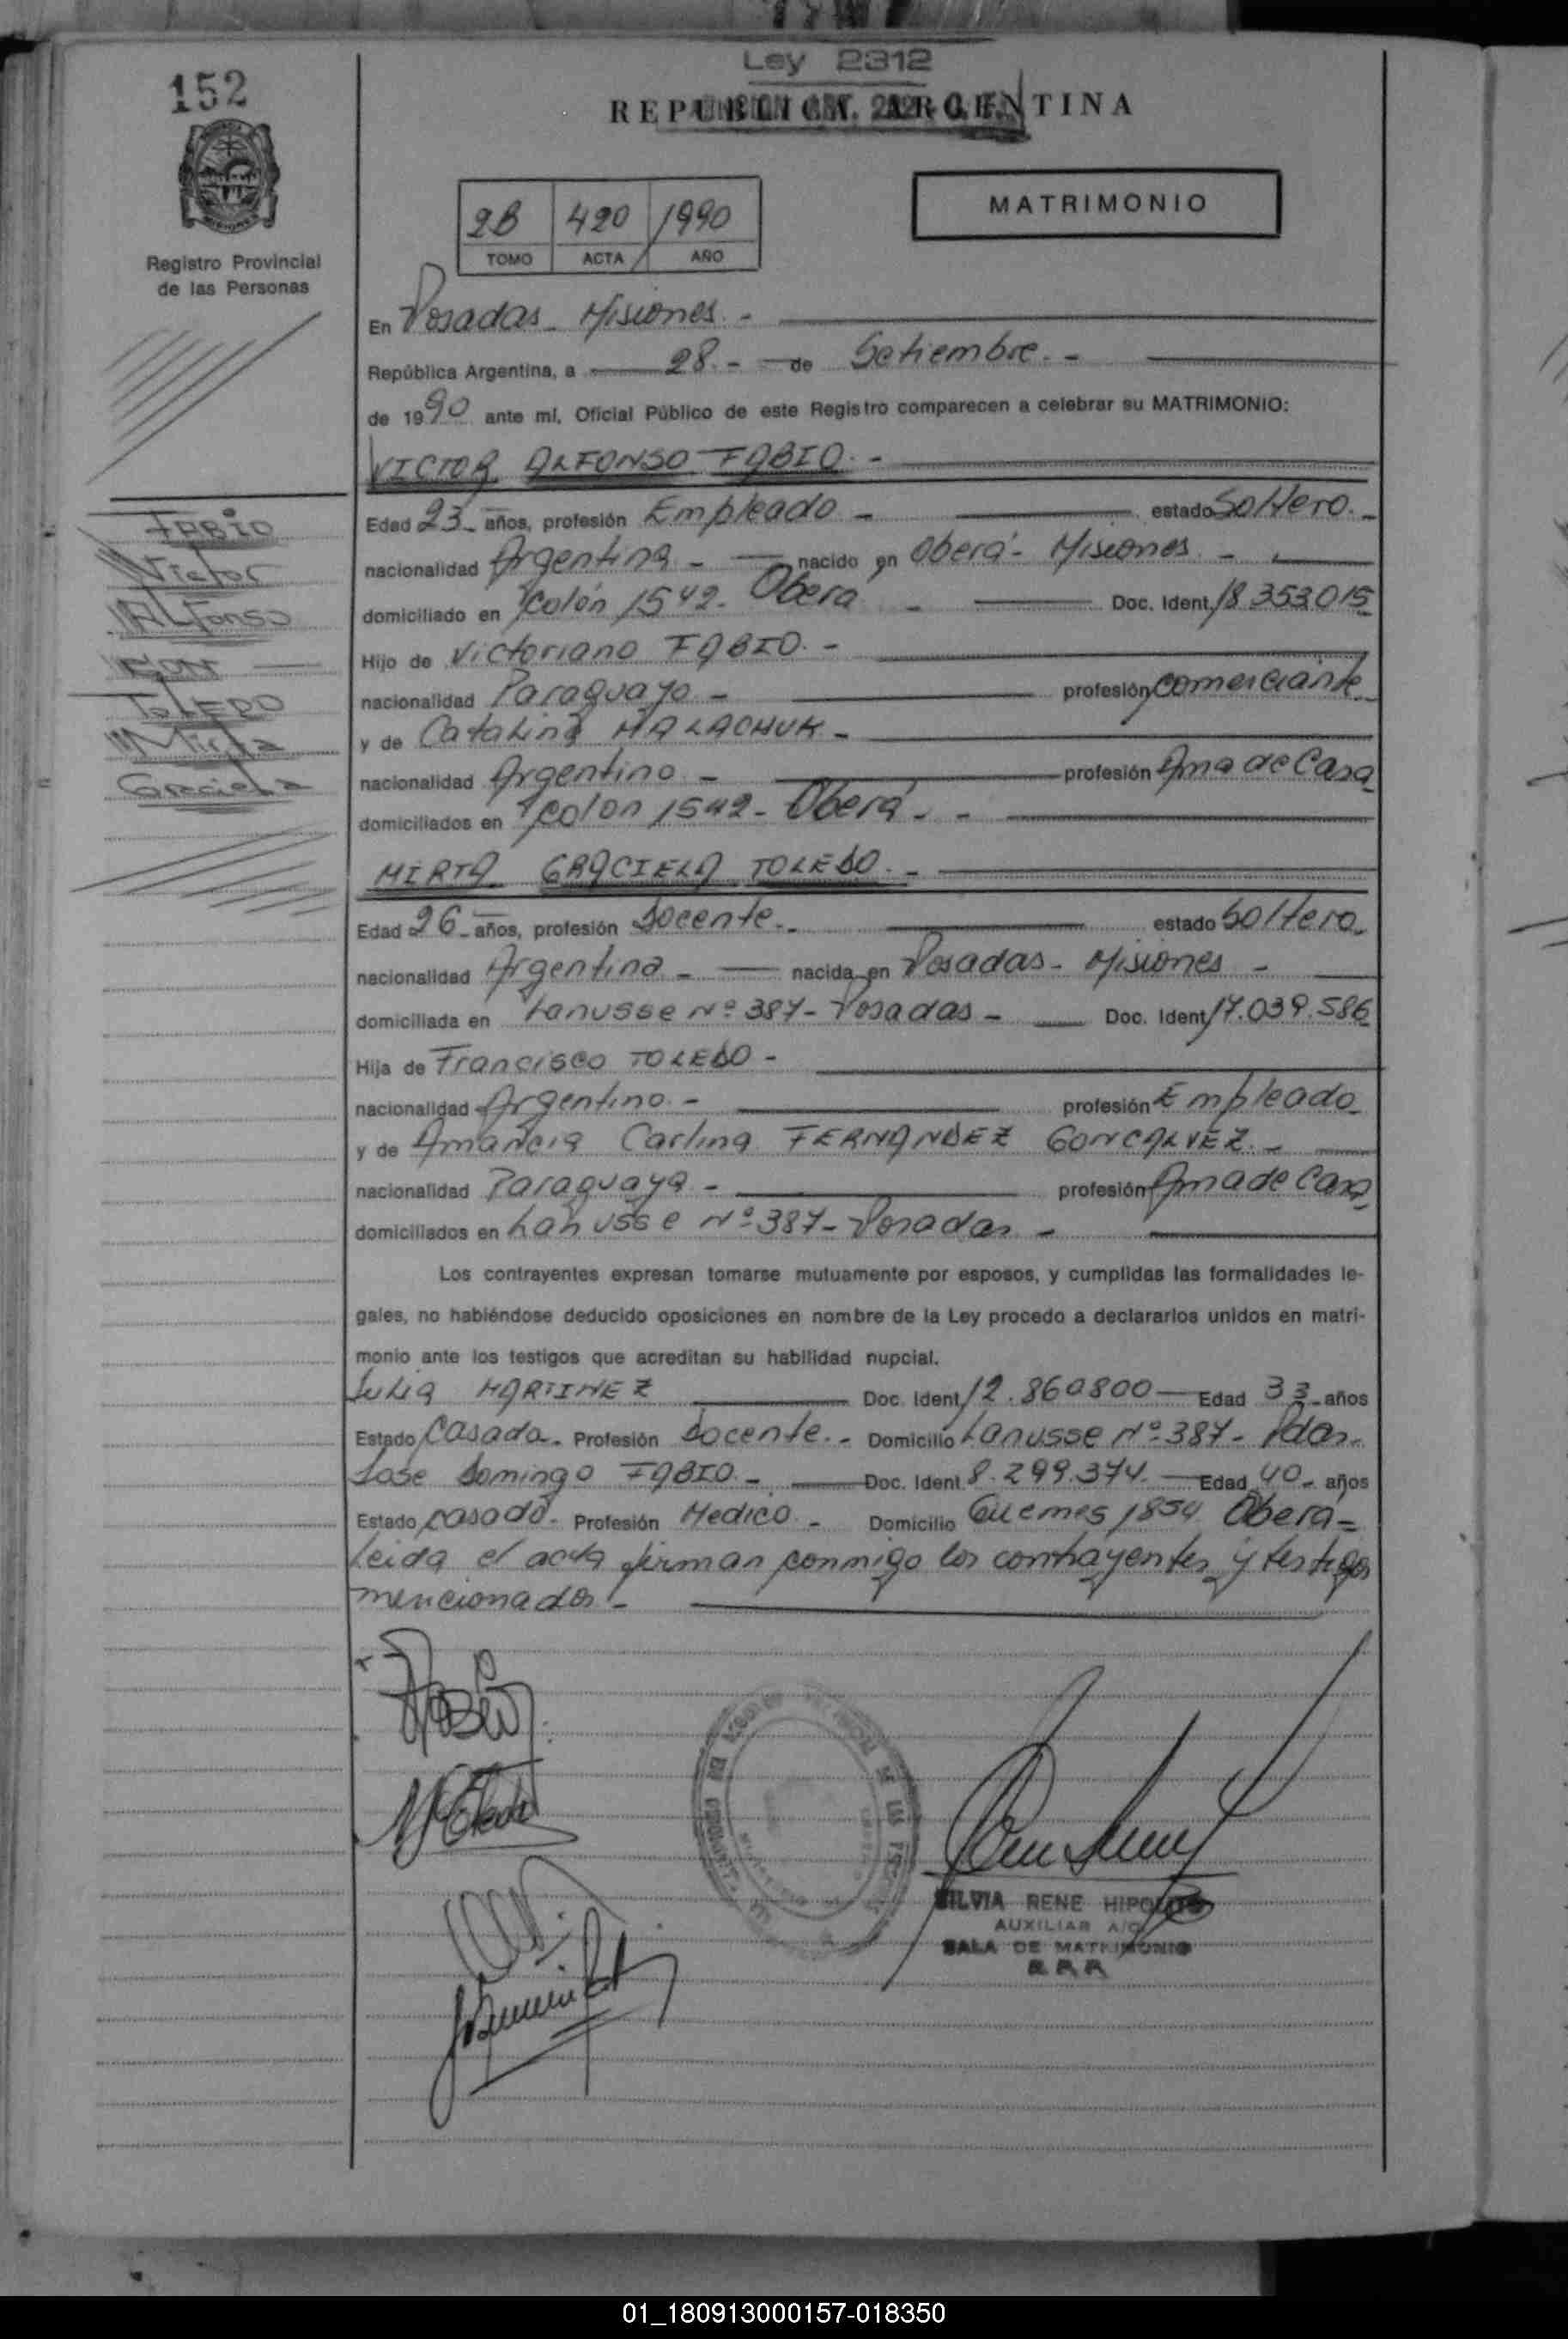 152
Ley 2312
REPUBLICA ARGENTINA
MATRIMONIO
2B 420 1990
TOMO ACTA AÑO
Registro Provincial
de las Personas
En Posadas - Misiones. -
República Argentina, a 28. - de Setiembre. -
de 1990 ante mí, Oficial Público de este Registro comparecen a celebrar su MATRIMONIO:
VICTOR ALFONSO FABIO. -
FABIO
Victor
Alfonso
CON
TOLEDO
Mirta
Graciela
Edad 23 - años, profesión Empleado - estado Soltero. -
nacionalidad Argentina - nacido en Oberá - Misiones -
domiciliado en Colón 1542 - Oberá - Doc. Ident. 18.353.015
Hijo de Victoriano FABIO. -
nacionalidad Paraguayo - profesión comerciante
y de Catalina MALACHUK -
nacionalidad Argentino - profesión Ama de Casa
domiciliados en Colon 1542 - Oberá - -
MIRTA GRACIELA TOLEDO. -
Edad 26 - años, profesión Docente - estado Soltera -
nacionalidad Argentina - nacida en Posadas - Misiones -
domiciliada en Lanusse Nº 387 - Posadas - Doc. Ident. 17.039.586
Hija de Francisco TOLEDO -
nacionalidad Argentino. - profesión Empleado
y de Amancia Carlina FERNANDEZ GONCALVEZ. -
nacionalidad Paraguaya - profesión Ama de Casa
domiciliados en Lanusse Nº 387 - Posadas -
Los contrayentes expresan tomarse mutuamente por esposos, y cumplidas las formalidades le-
gales, no habiéndose deducido oposiciones en nombre de la Ley procedo a declararlos unidos en matri-
monio ante los testigos que acreditan su habilidad nupcial.
Julia MARTINEZ Doc. Ident. 12.860800 - Edad 33 - años
Estado Casada - Profesión Docente. - Domicilio Lanusse Nº 387 - Pdas. -
Jose Domingo FABIO - Doc. Ident. 8.299.374. - Edad 40 - años
Estado casado - Profesión Medico - Domicilio Guemes 1854 Oberá -
Leida el acta firman conmigo los contrayentes y testigos
mencionados! -
SILVIA RENE HIPOLITO
AUXILIAR A/C
SALA DE MATRIMONIO
R P P
01_180913000157-018350